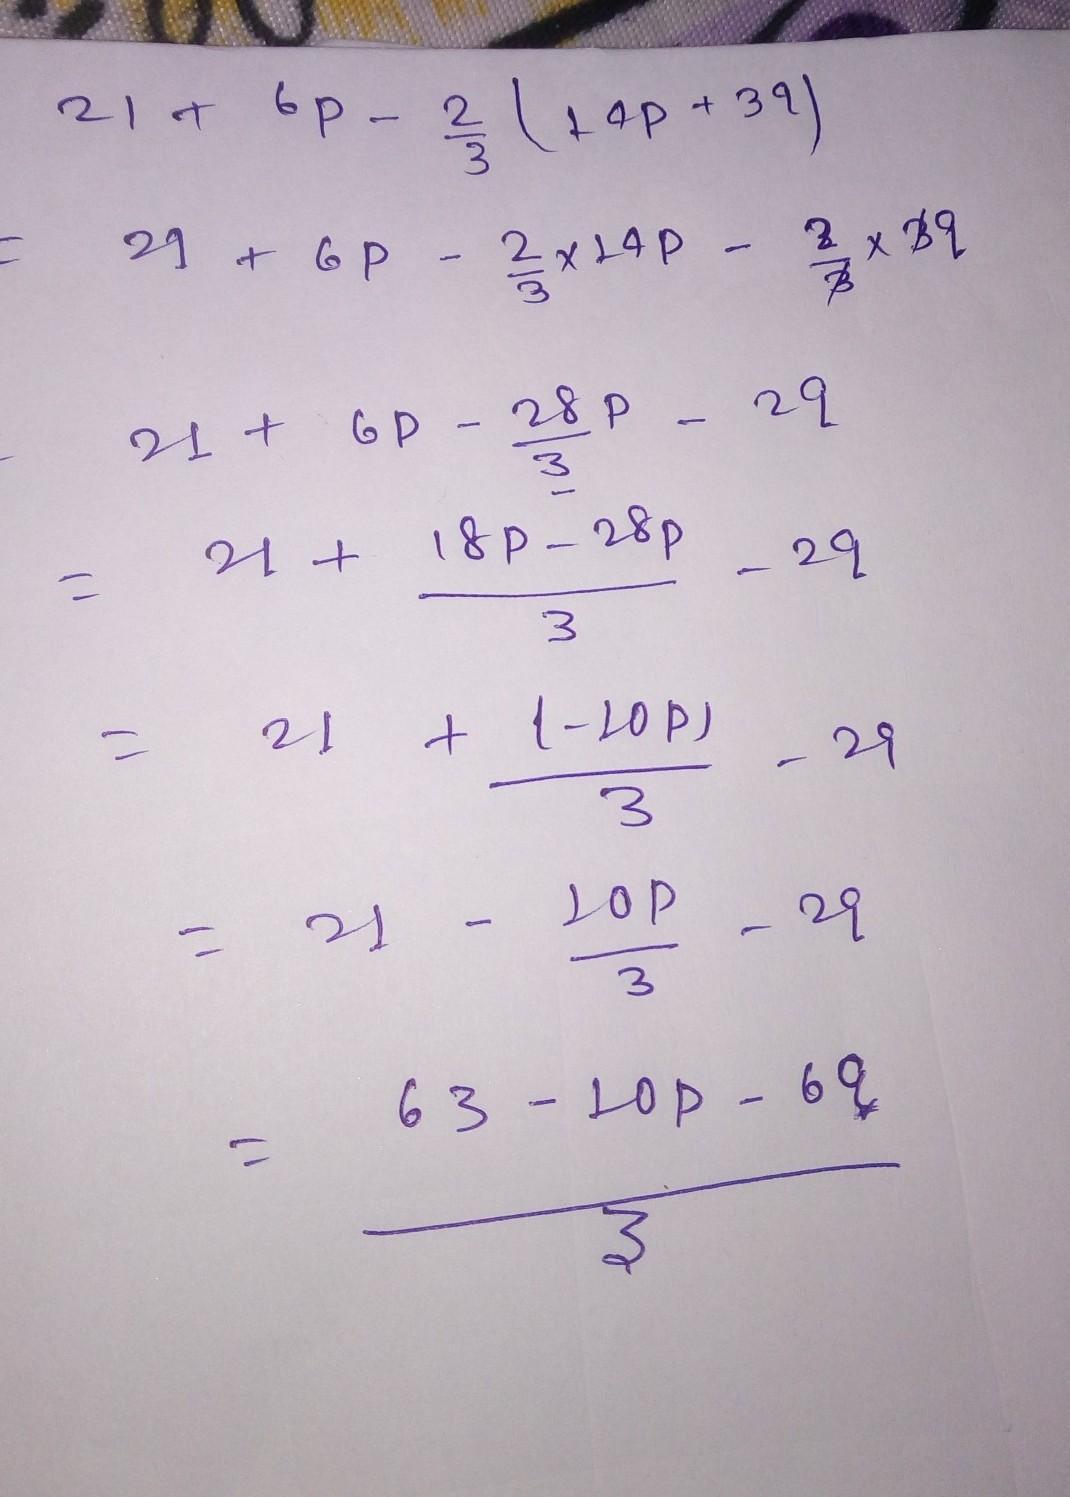 21 + 6p - 2/3 (14p + 3q)
= 29 + 6p - 2/3 × 14p - 2/3 × 3q
21 + 6p - 28p/3 - 2q
= 21 + (18p - 28p)/3 - 2q
= 21 + (-10p)/3 - 2q
= 21 - 10p/3 - 2q
= (63 - 10p - 6q)/3